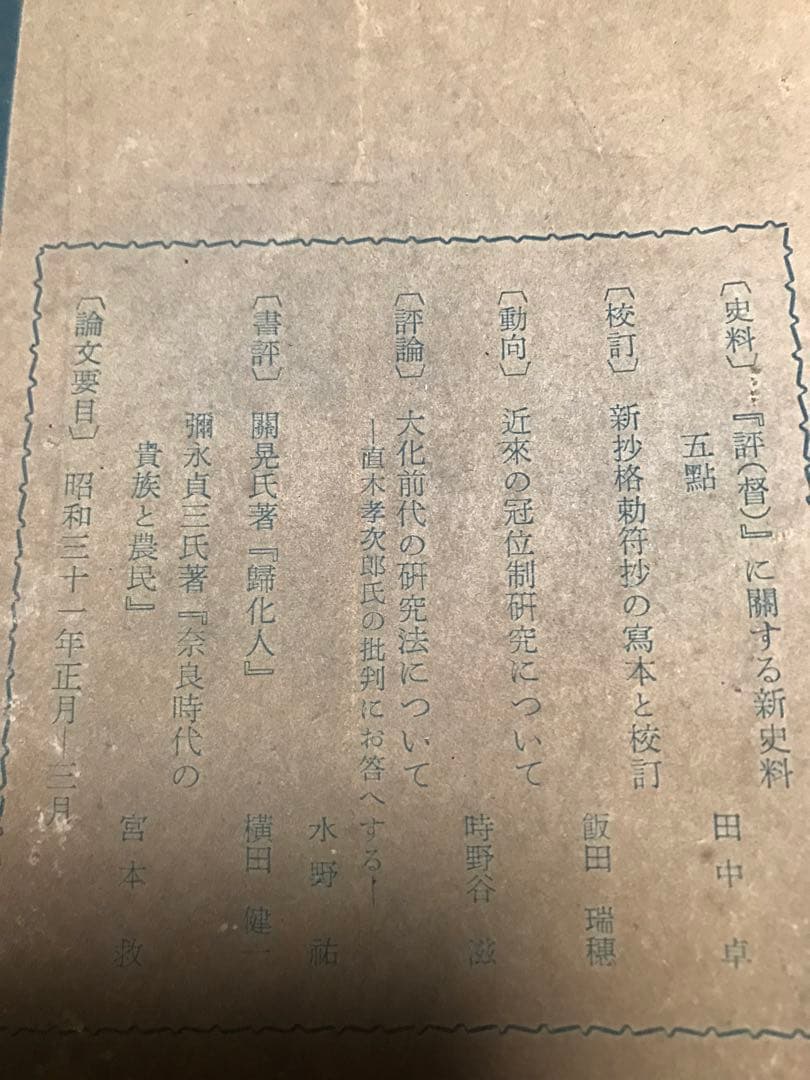 〔史料〕『評(督)』に關する新史料
五點
田中 卓
〔校訂〕 新抄格勅符抄の寫本と校訂
飯田 瑞穗
〔動向〕 近來の冠位制研究について
時野谷 滋
〔評論〕 大化前代の研究法について
―直木孝次郎氏の批判にお答へする―
水野 祐
〔書評〕 關晃氏著『歸化人』
橫田 健一
彌永貞三氏著『奈良時代の
貴族と農民』
宮本 救
〔論文要目〕 昭和三十一年正月―三月